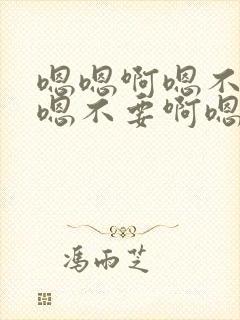 嗯嗯啊嗯不
嗯不要啊嗯
冯雨芝